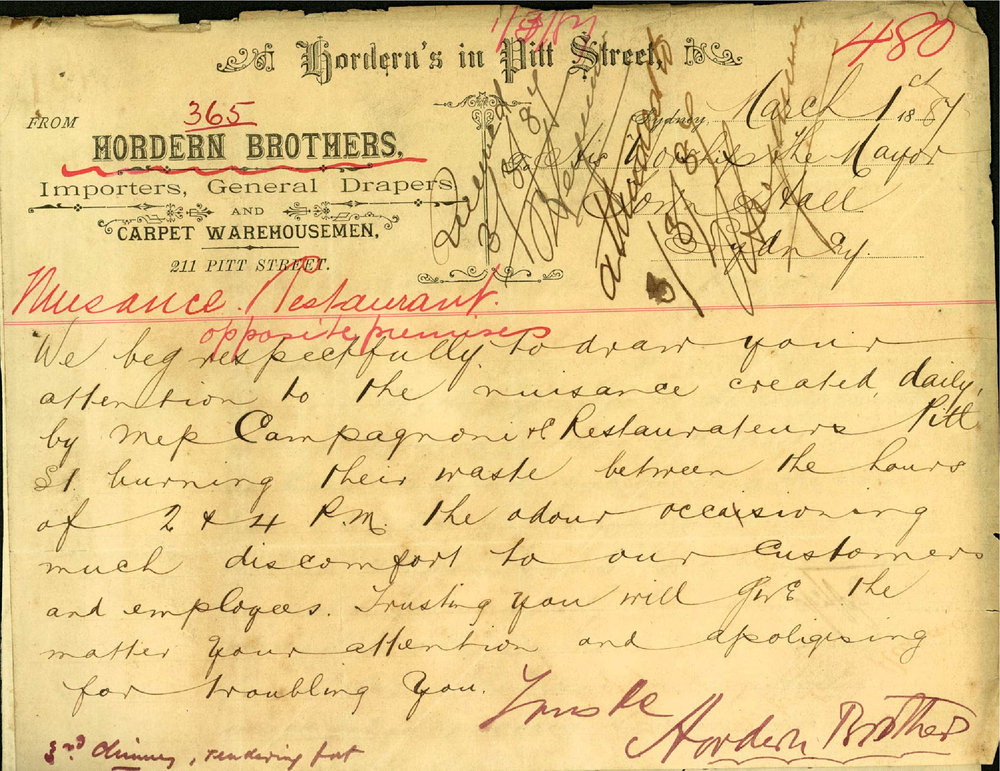 1/3/87
Hordern's in Pitt Street,
480
365
FROM
HORDERN BROTHERS,
Importers, General Drapers
AND
CARPET WAREHOUSEMEN,
211 PITT STREET.
Sydney, March 1st 1887
His Worship the Mayor
Town Hall
Sydney.
Nuisance. Restaurant.
opposite premises
We beg respectfully to draw your
attention to the nuisance created daily,
by Mess Campagnoni & Restaurateurs Pitt
St burning their waste between the hours
of 2 & 4 P.M. the odour occaisioning
much discomfort to our Customers
and employees. Trusting you will give the
matter your attention and apoligising
for troubling you.
Yours &c
Hordern Brothers
3rd chimney, rendering fat